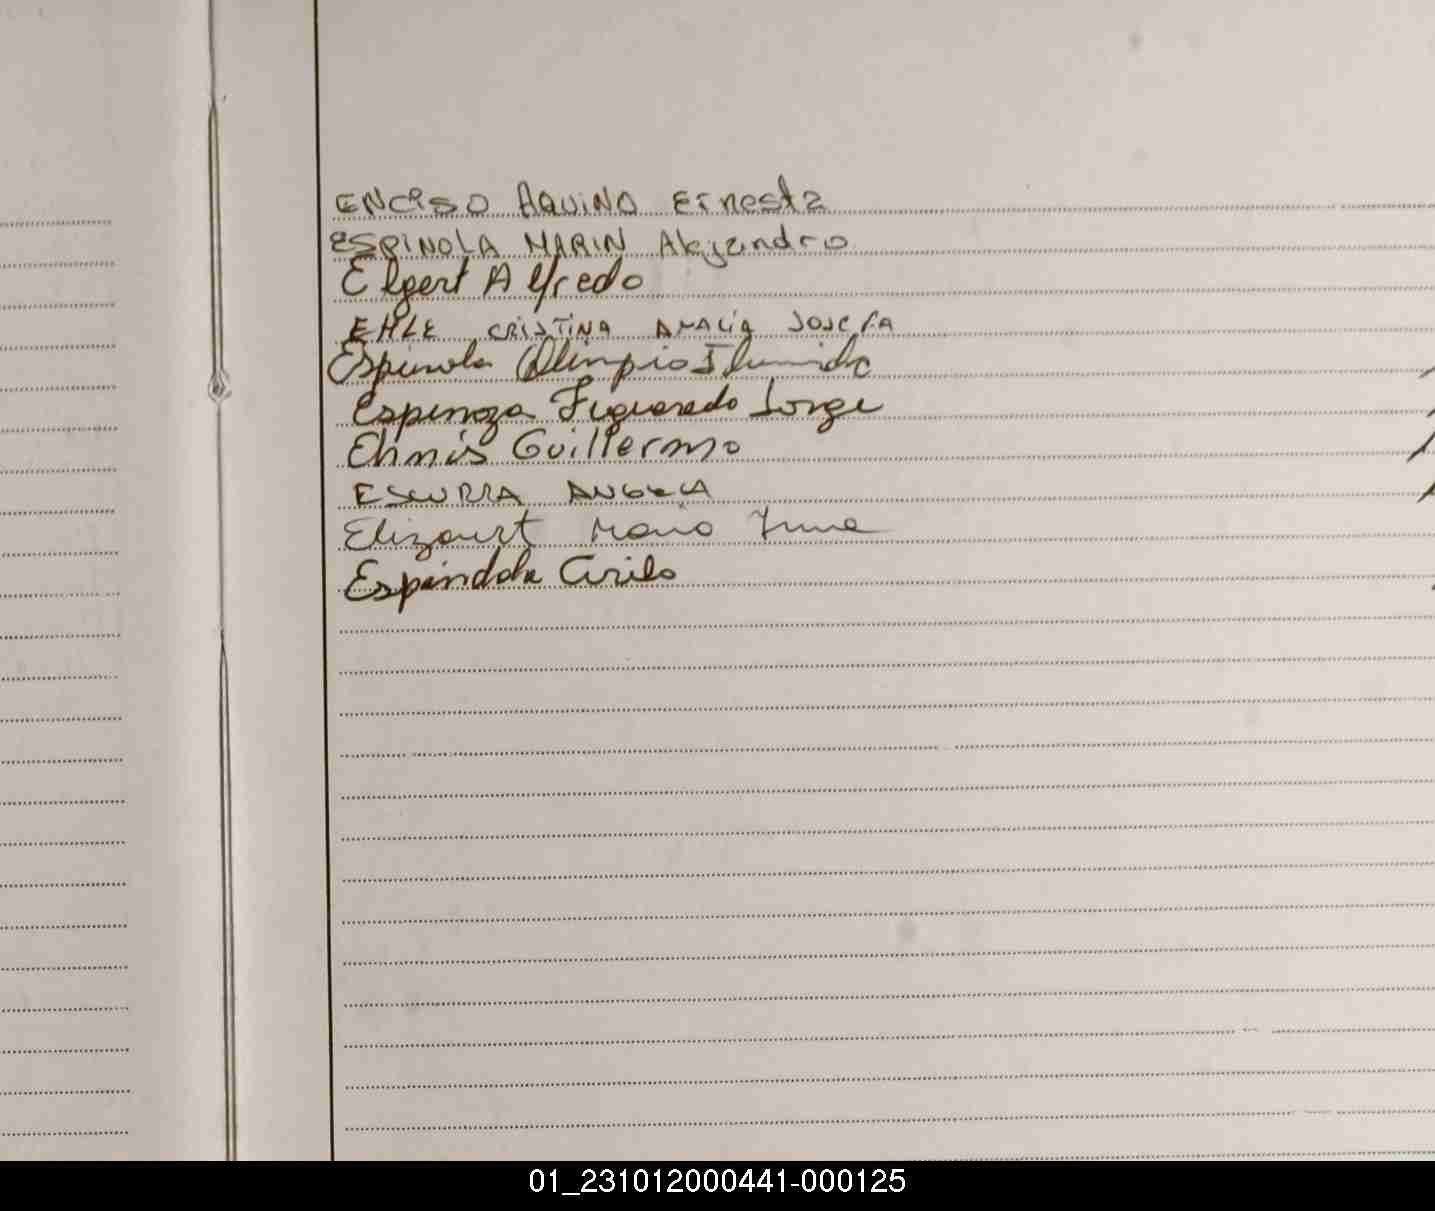 ENCISO AQUINO Ernesta
ESPINOLA MARIN Alejandro
Elgert Alfredo
EHLE CRISTINA AMALIA JOSEFA
Espinola Olimpio Ilumido
Espinoza Figueredo Jorge
Ehnis Guillermo
ESCURRA ANGELA
Elizaurt Mario
Espindola Cirilo
01_231012000441-000125